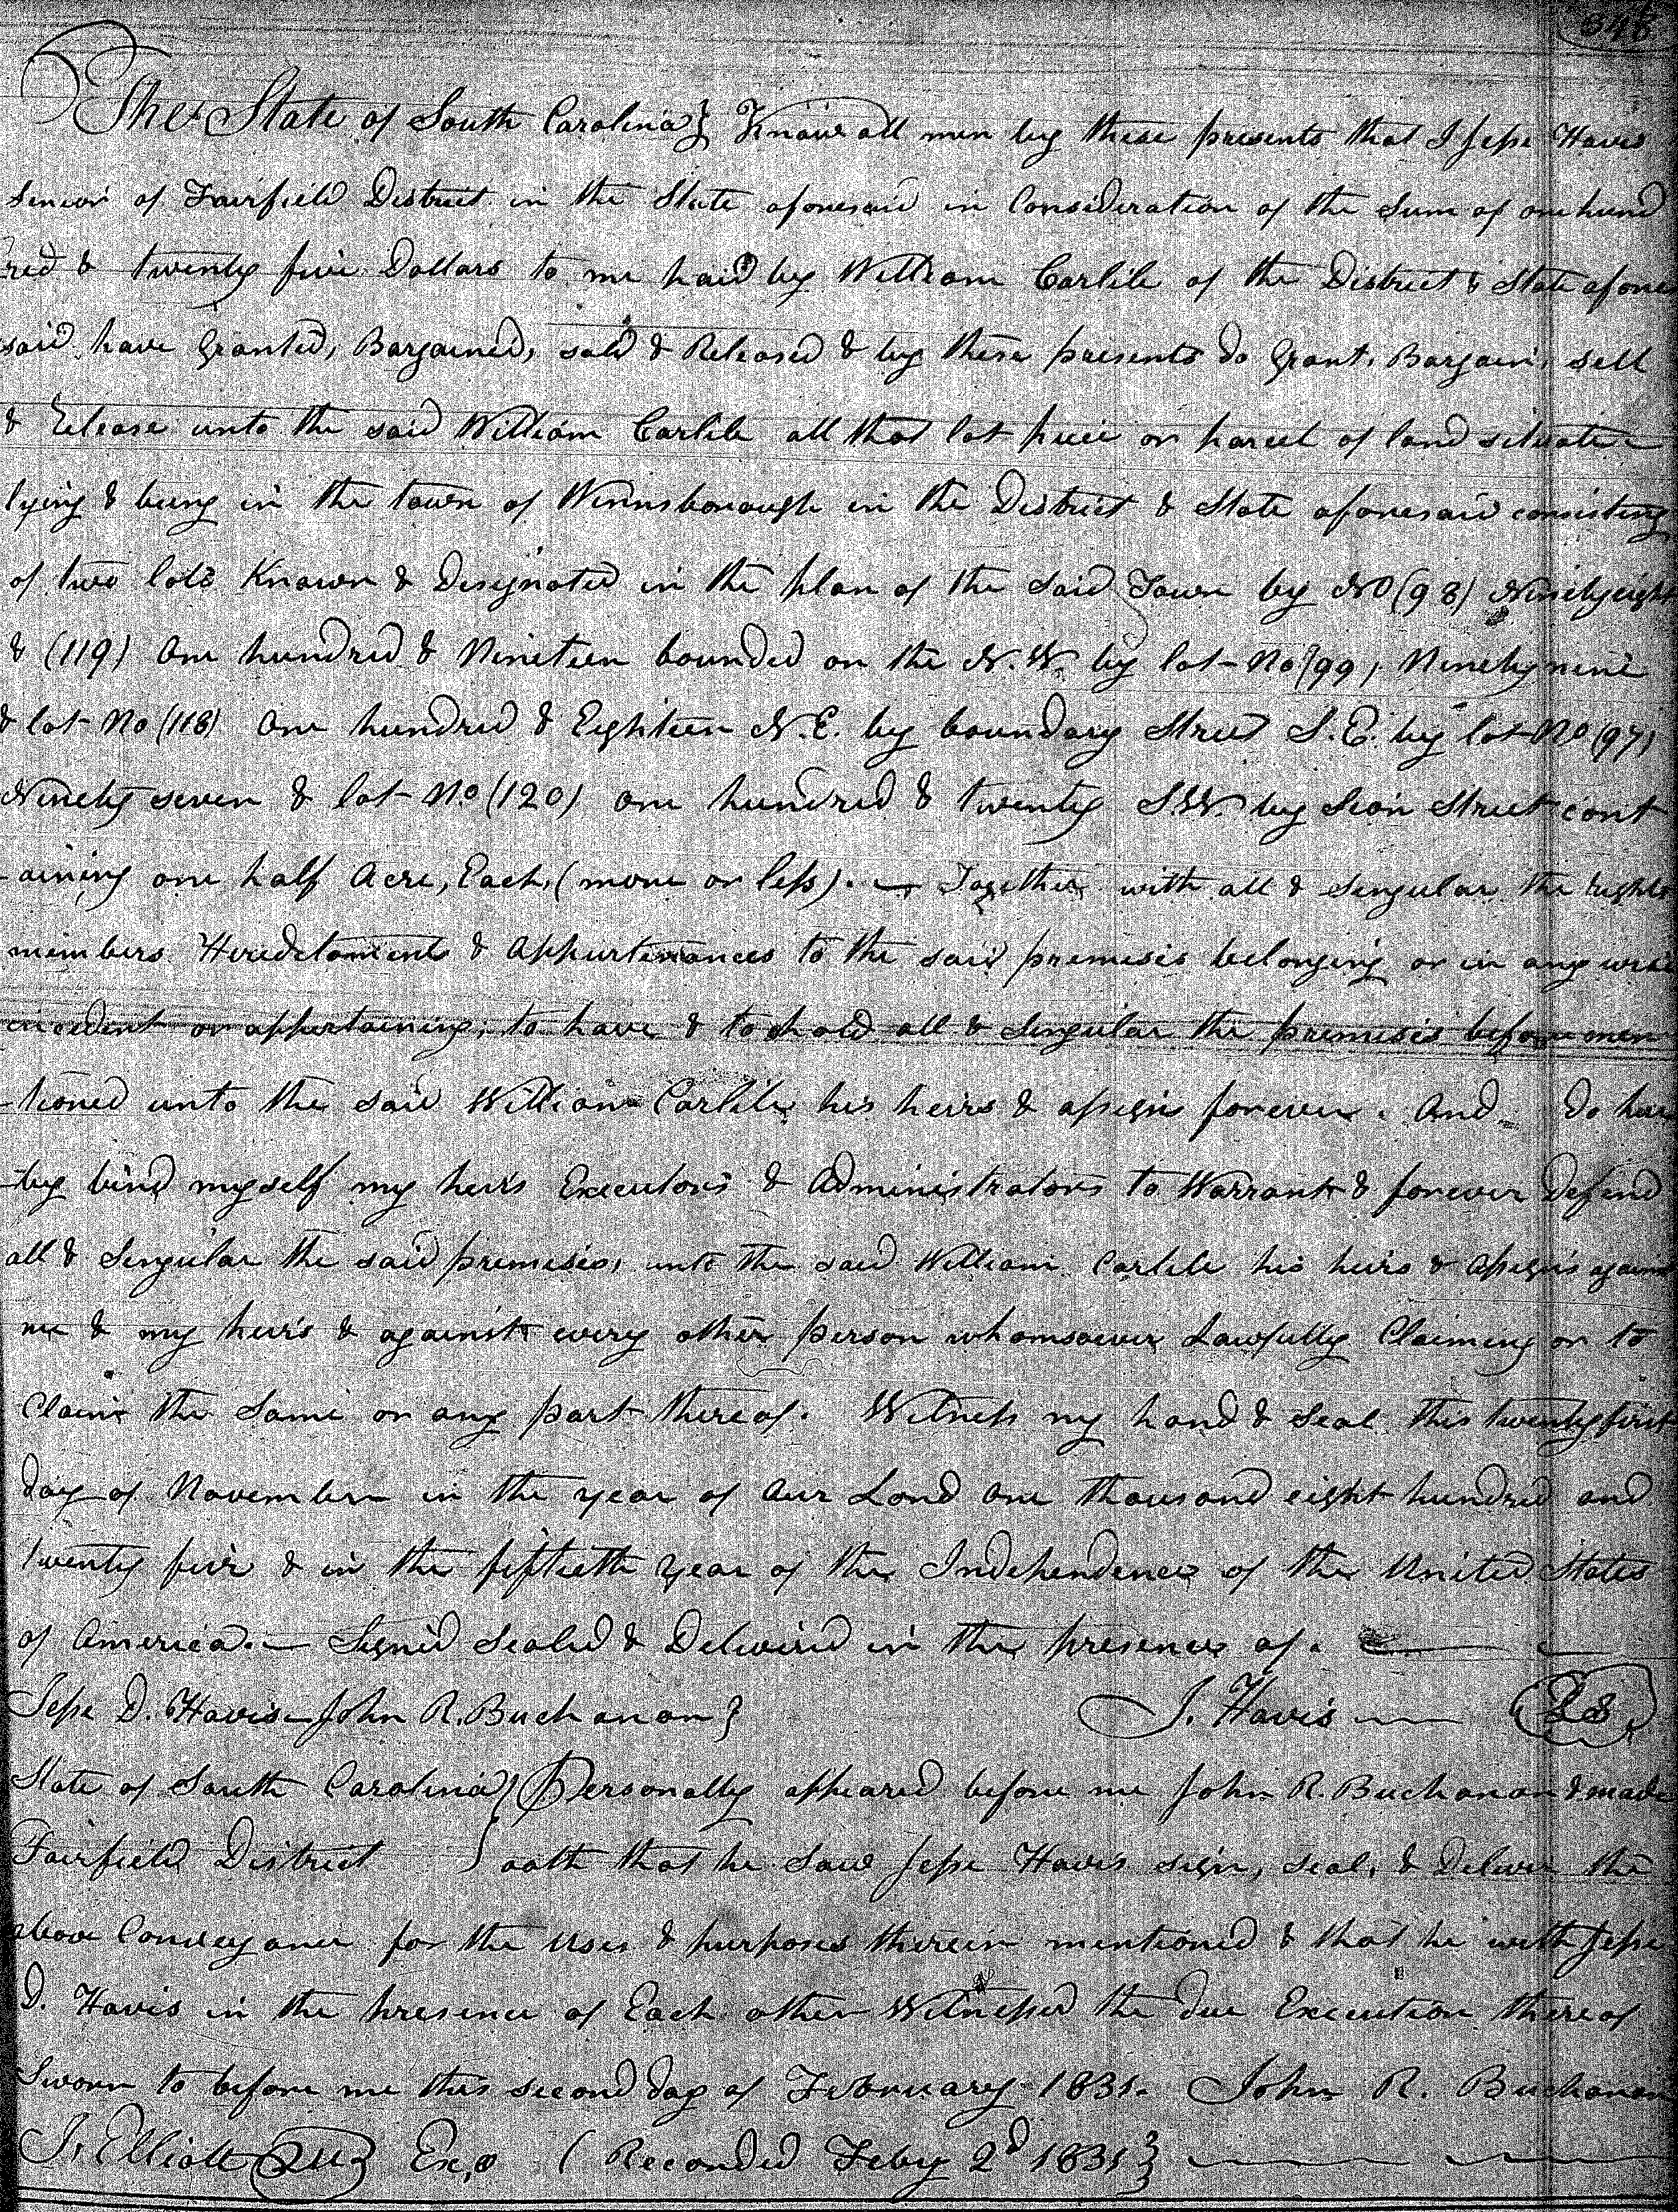 The State of South Carolina} Know all men by these presents that I Jesse Havis
Senior of Fairfield District in the State aforesaid in Consideration of the Sum of one hund
red & twenty five Dollars to me paid by William Carlile of the District & State afore
said have Granted, Bargained, sold & Released & by these presents do Grant, Bargain, sell
& Release unto the said William Carlile all that lot piece or parcel of land situate
lying & being in the town of Winnsborough in the District & State aforesaid consisting
of two lots Known & Designated in the plan of the said Town by No (98) Ninety eight
& (119) One hundred & Nineteen bounded on the N.W. by lot No (99) Ninety nine
& lot No (118) One hundred & Eighteen N.E. by boundary Street S.E. by lot No (97)
Ninety seven & lot No (120) one hundred & twenty S.W. by Sion Street cont
-aining one half Acre, Each, (more or less). Together with all & Singular the rights
members Hereditaments & Appurtenances to the said premises belonging or in any wise
incident or appertaining, to have & to hold all & Singular the premises before men
-tioned unto the said William Carlile his heirs & assigns forever. And do here
-by bind myself my heirs Executors & Administrators to Warrant & forever defend
all & Singular the said premises, unto the said William Carlile his heirs & assigns against
me & my heirs & against every other person whomsoever Lawfully Claiming or to
Claim the Same or any part thereof. Witness my hand & Seal this twenty first
day of November in the year of our Lord one thousand eight hundred and
twenty five & in the fiftieth year of the Independence of the United States
of America. Signed Sealed & Delivered in the presence of.
Jesse D. Havis John R. Buchanan} J. Havis LS
State of South Carolina} Personally appeared before me John R. Buchanan & made
Fairfield District } oath that he saw Jesse Havis sign, seal, & Deliver the
above Conveyance for the uses & purposes therein mentioned & that he with Jesse
D. Havis in the presence of Each other Witnessed the due Execution thereof
Sworn to before me this second day of February 1831. John R. Buchanan
J. Elliott Ex,o (Recorded Feby 2d 1831}